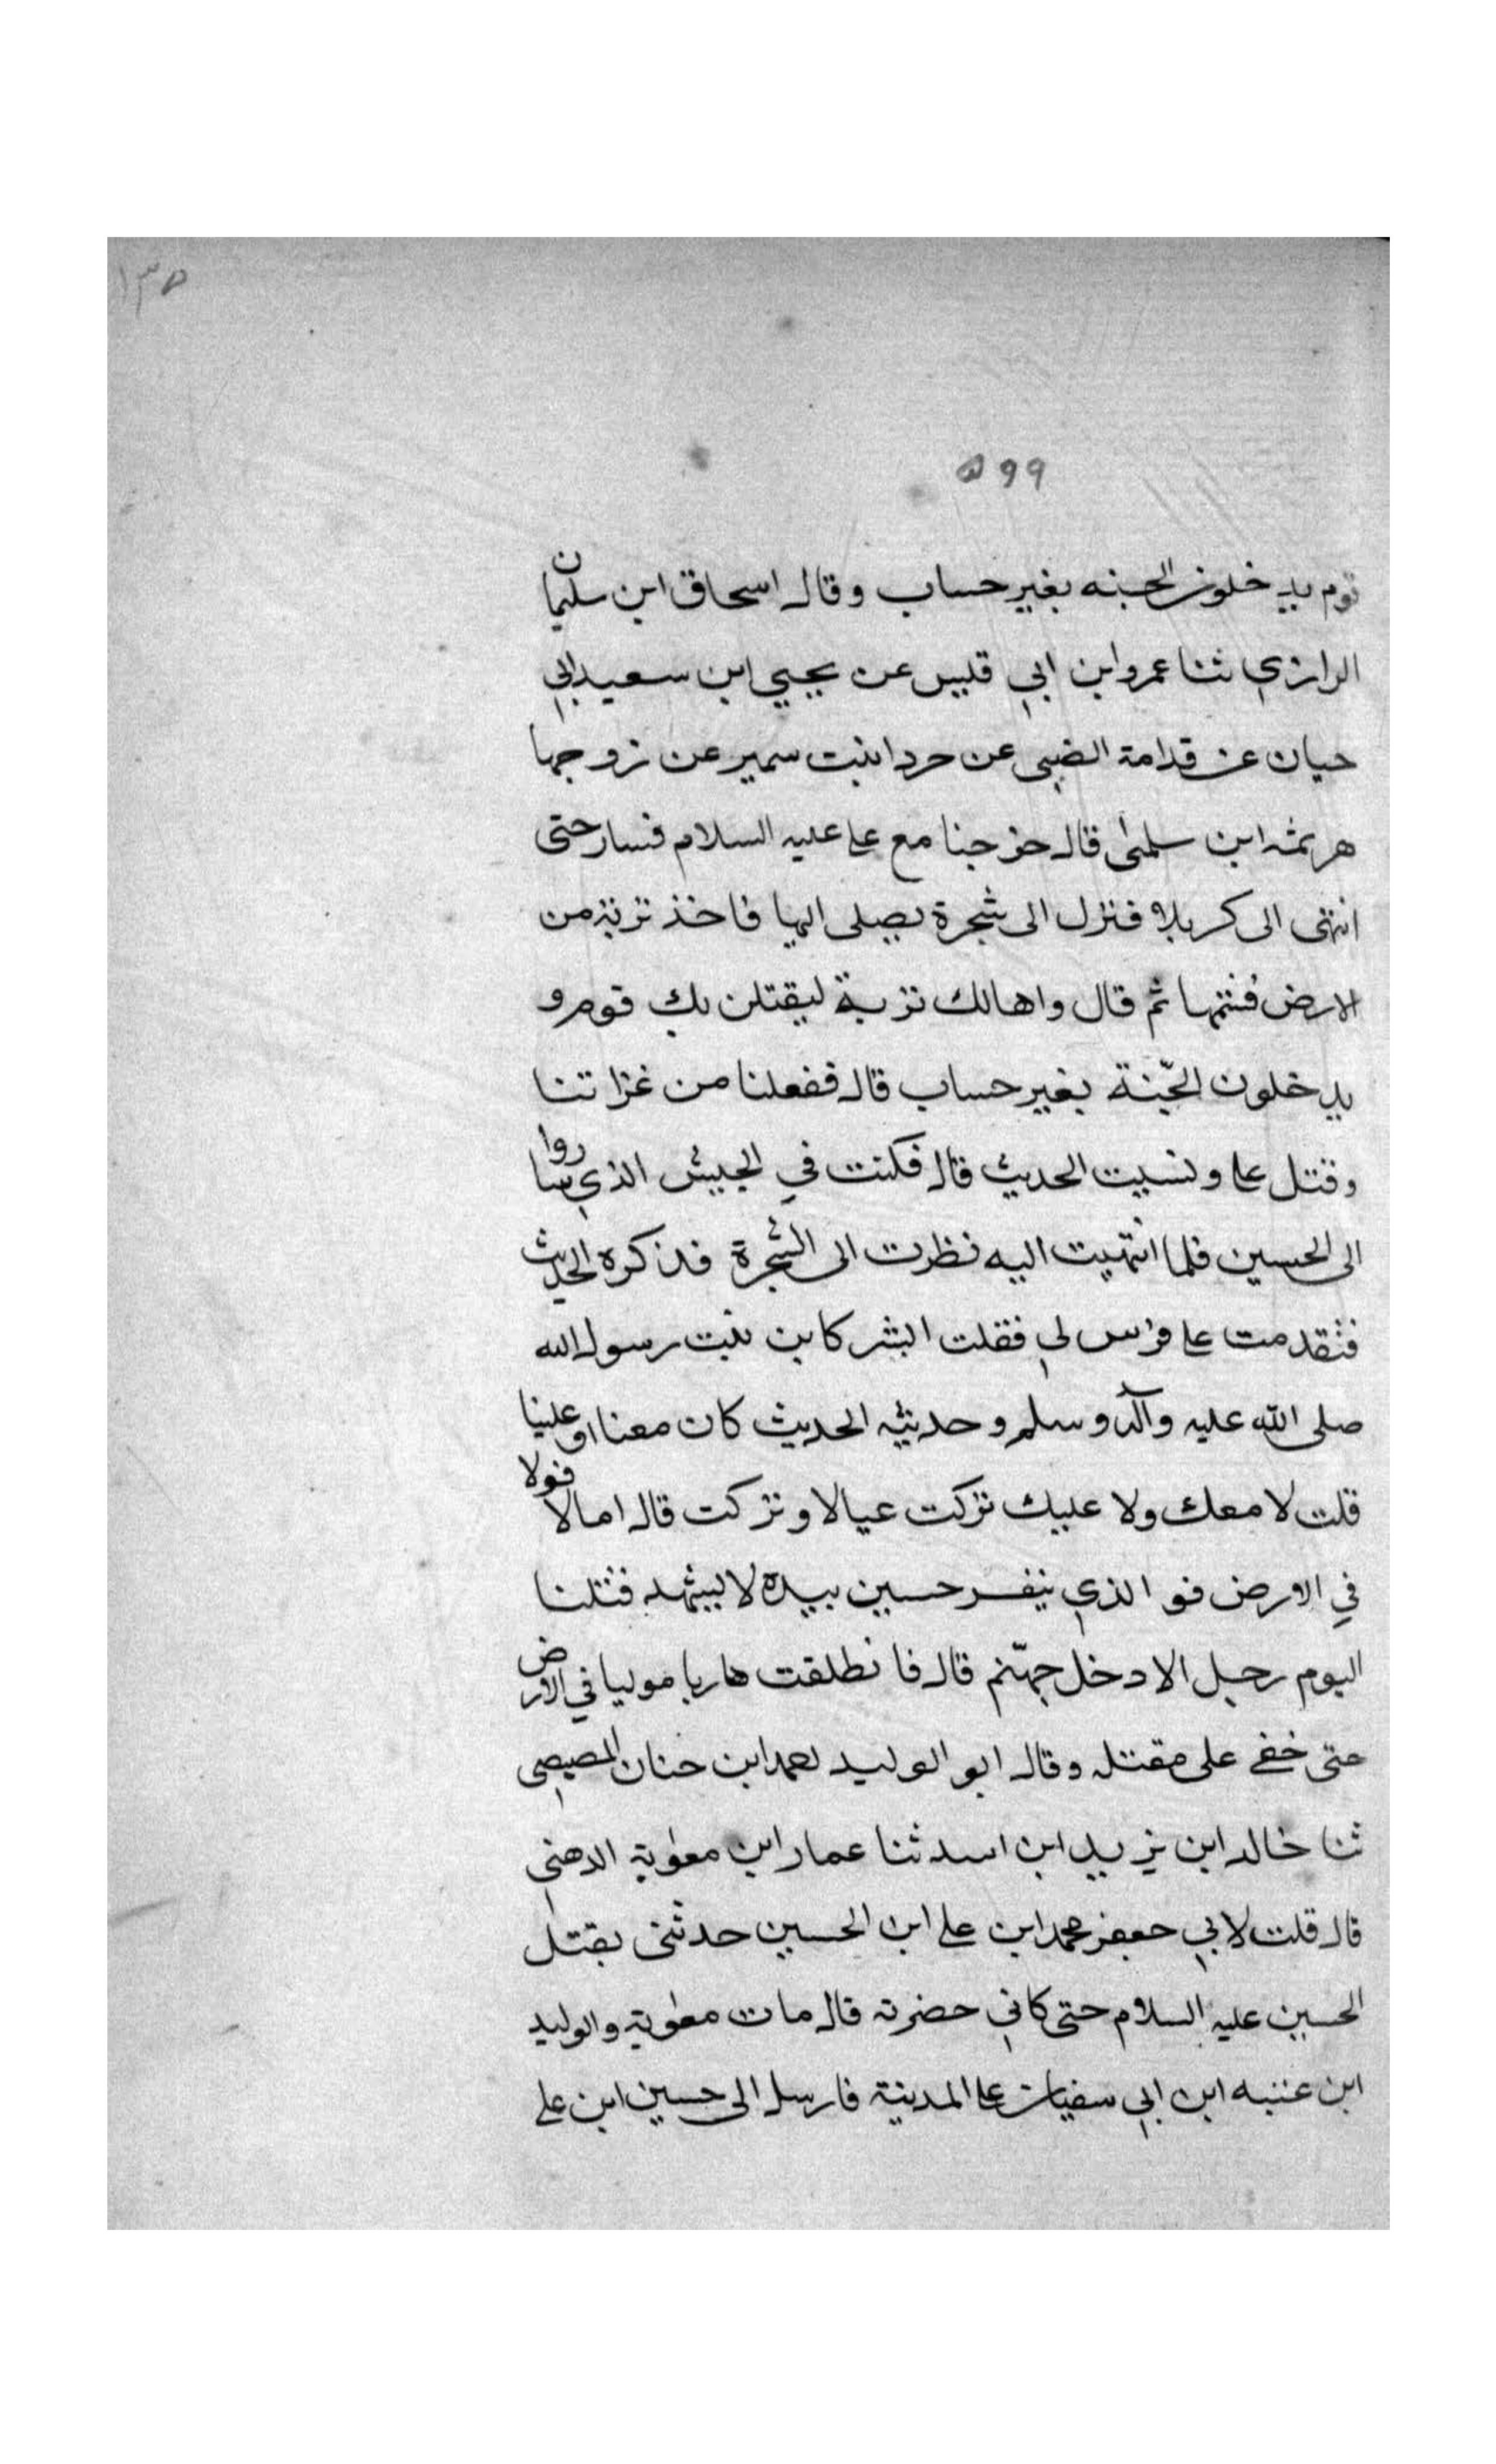 ١٣٥
٥٩٩
قوم يدخلون الجنه بغير حساب وقال اسحاق ابن سليمان
الرازي ثنا عمرو ابن ابي قيس عن يحيي ابن سعيد ابي
حيان عن قدامة الضبى عن جردا بنت سمير عن زوجها
هرثمه ابن سلمى قال خرجنا مع على عليه السلام فسار حتى
انتهى الى كربلا فنزل الى شجرة يصلى اليها فاخذ تربة من
الارض فشمها ثم قال واها لك تربة ليقتلن بك قوم و
يدخلون الجّنة بغير حساب قال ففعلنا من غزاتنا
وقتل على ونسيت الحديث قال فكنت في الجيش الذي ساروا
الى الحسين فلما انتهيت اليه نظرت الى الشجرة فذكره الحديث
فتقدمت على فرس لي فقلت ابشر كابن بنت رسول الله
صلى الله عليه وآله وسلم وحدثته الحديث كان معنا او علينا
قلت لا معك ولا عليك تركت عيالا وتركت قال اما لا فولا
في الارض فو الذي نفس حسين بيده لا يشهد قتلنا
اليوم رجل الا دخل جهّنم قال فانطلقت هاربا موليا في الارض
حتى خفى على مقتله وقال ابو الوليد احمد ابن جنان المصيصى
ثنا خالد ابن يزيد ابن اسد ثنا عمار ابن معٰوية الدهنى
قال قلت لابي جعفر محمد ابن على ابن الحسين حدثنى بقتل
الحسين عليه السلام حتى كاني حضرته قال مات معٰوية والوليد
ابن عتبه ابن ابي سفيان على المدينة فارسل الى حسين ابن على